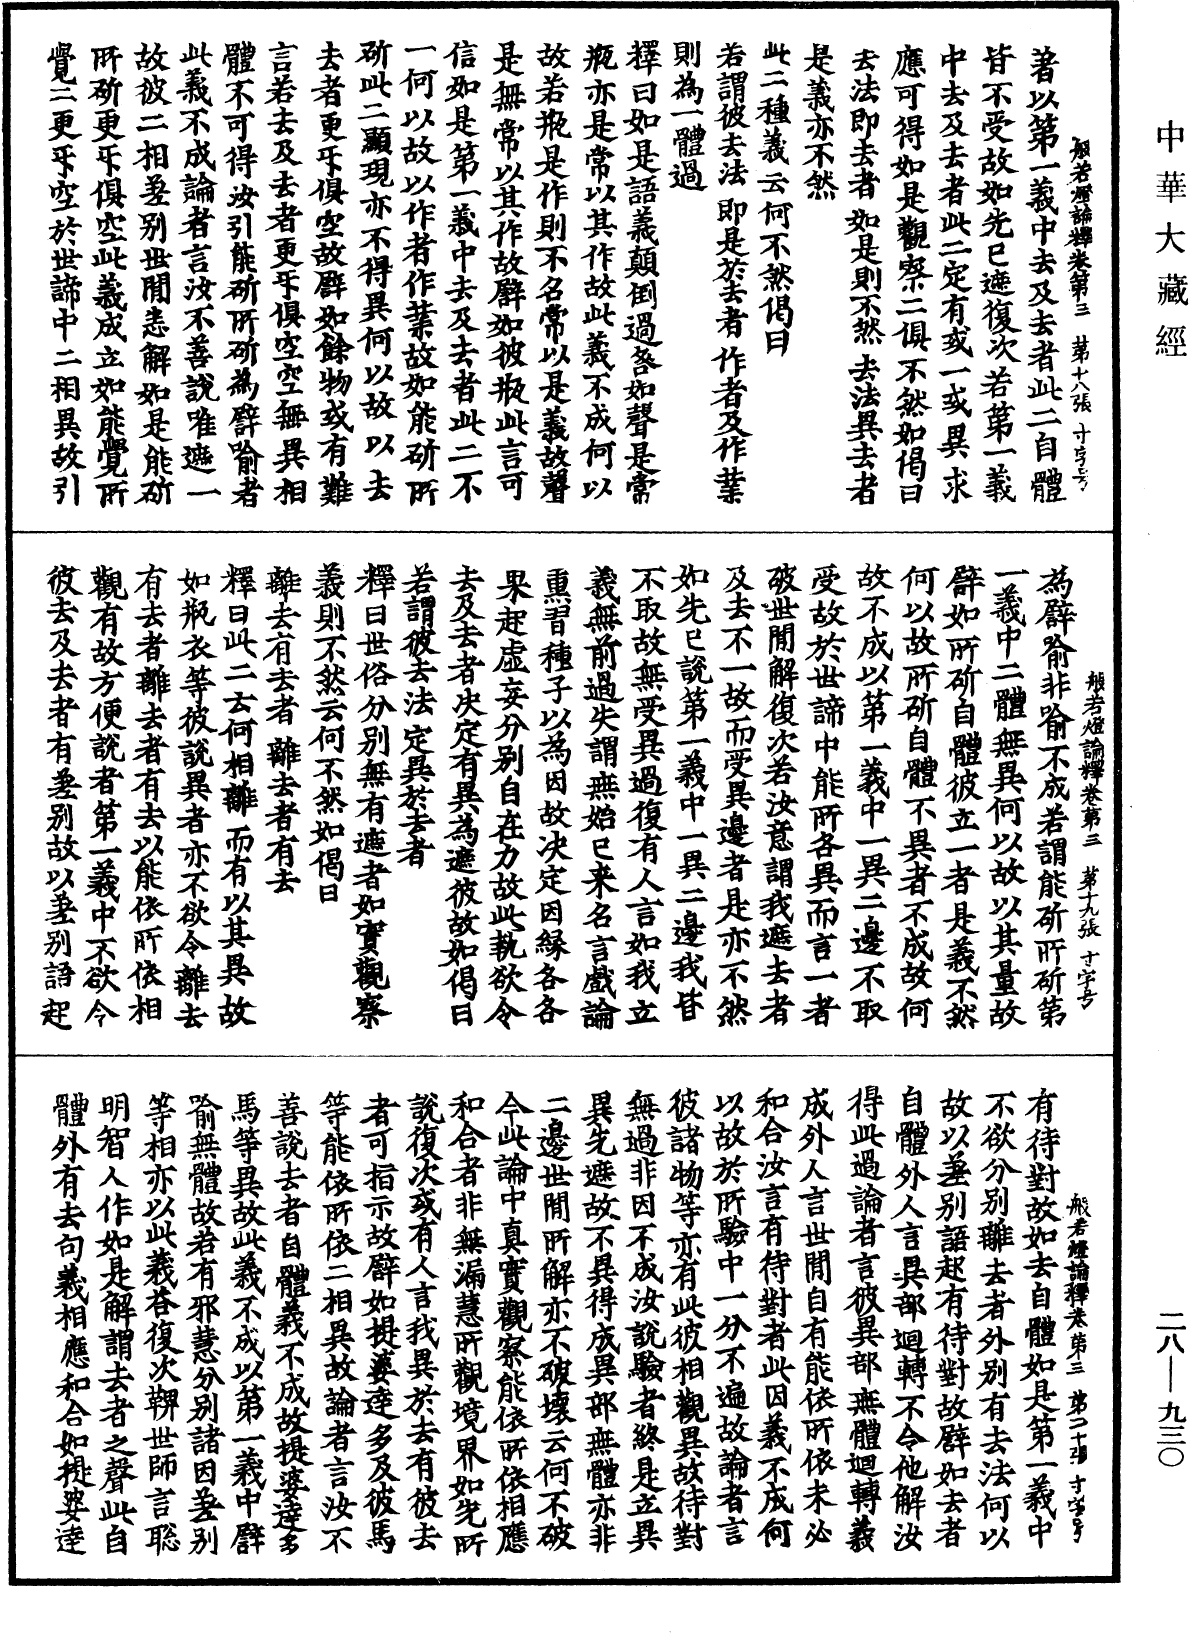 中華大藏經
般若燈論釋卷第三　第十八張　寸字号
著以第一義中去及去者此二自體
皆不受故如先已遮復次若第一義
中去及去者此二定有或一或異求
應可得如是觀察二俱不然如偈曰
去法即去者　如是則不然　去法異去者
是義亦不然
此二種義云何不然偈曰
若謂彼去法　即是於去者　作者及作業
則為一體過
釋曰如是語義顛倒過咎如聲是常
瓶亦是常以其作故此義不成何以
故若瓶是作則不名常以是義故聲
是無常以其作故譬如彼瓶此言可
信如是第一義中去及去者此二不
一何以故以作者作業故如能斫所
斫此二顯現亦不得異何以故以去
去者更互俱空故譬如餘物或有難
言若去及去者更互俱空空無異相
體不可得汝引能斫所斫為譬喻者
此義不成論者言汝不善說唯遮一
故彼二相差別世間悉解如是能斫
所斫更互俱空此義成立如能覺所
覺二更互空於世諦中二相異故引
般若燈論釋卷第三　第十九張　寸字号
為譬喻非喻不成若謂能斫所斫第
一義中二體無異何以故以其量故
譬如所斫自體彼立一者是義不然
何以故所斫自體不異者不成故何
故不成以第一義中一異二邊不取
受故於世諦中能所各異而言一者
破世間解復次若汝意謂我遮去者
及去不一故而受異邊者是亦不然
如先已說第一義中一異二邊我皆
不取故無受異過復有人言如我立
義無前過失謂無始已来名言戲論
熏習種子以為因故決定因緣各各
果起虛妄分別自在力故此執欲令
去及去者決定有異為遮彼故如偈曰
若謂彼去法　定異於去者
釋曰世俗分別無有遮者如實觀察
義則不然云何不然如偈曰
離去有去者　離去者有去
釋曰此二云何相離而有以其異故
如瓶衣等彼說異者亦不欲令離去
有去者離去者有去以能依所依相
觀有故方便說者第一義中不欲令
彼去及去者有差別故以差別語起
般若燈論釋卷第三　第二十張　寸字号
有待對故如去自體如是第一義中
不欲分別離去者外別有去法何以
故以差別語起有待對故譬如去者
自體外人言異部迴轉不令他解汝
得此過論者言彼異部無體迴轉義
成外人言世間自有能依所依未必
和合汝言有待對者此因義不成何
以故於所驗中一分不遍故論者言
彼諸物等亦有此彼相觀異故待對
無過非因不成汝說驗者終是立異
異先遮故不異得成異部無體亦非
二邊世間所解亦不破壞云何不破
今此論中真實觀察能依所依相應
和合者非無漏慧所觀境界如先所
說復次或有人言我異於去有彼去
者可指示故譬如提婆達多及彼馬
等能依所依二相異故論者言汝不
善說去者自體義不成故提婆達多
馬等異故此義不成以第一義中譬
喻無體故若有邪慧分別諸因差別
等相亦以此義荅復次鞞世師言聡
明智人作如是解謂去者之聲此自
體外有去句義相應和合如提婆達
二八—九三〇